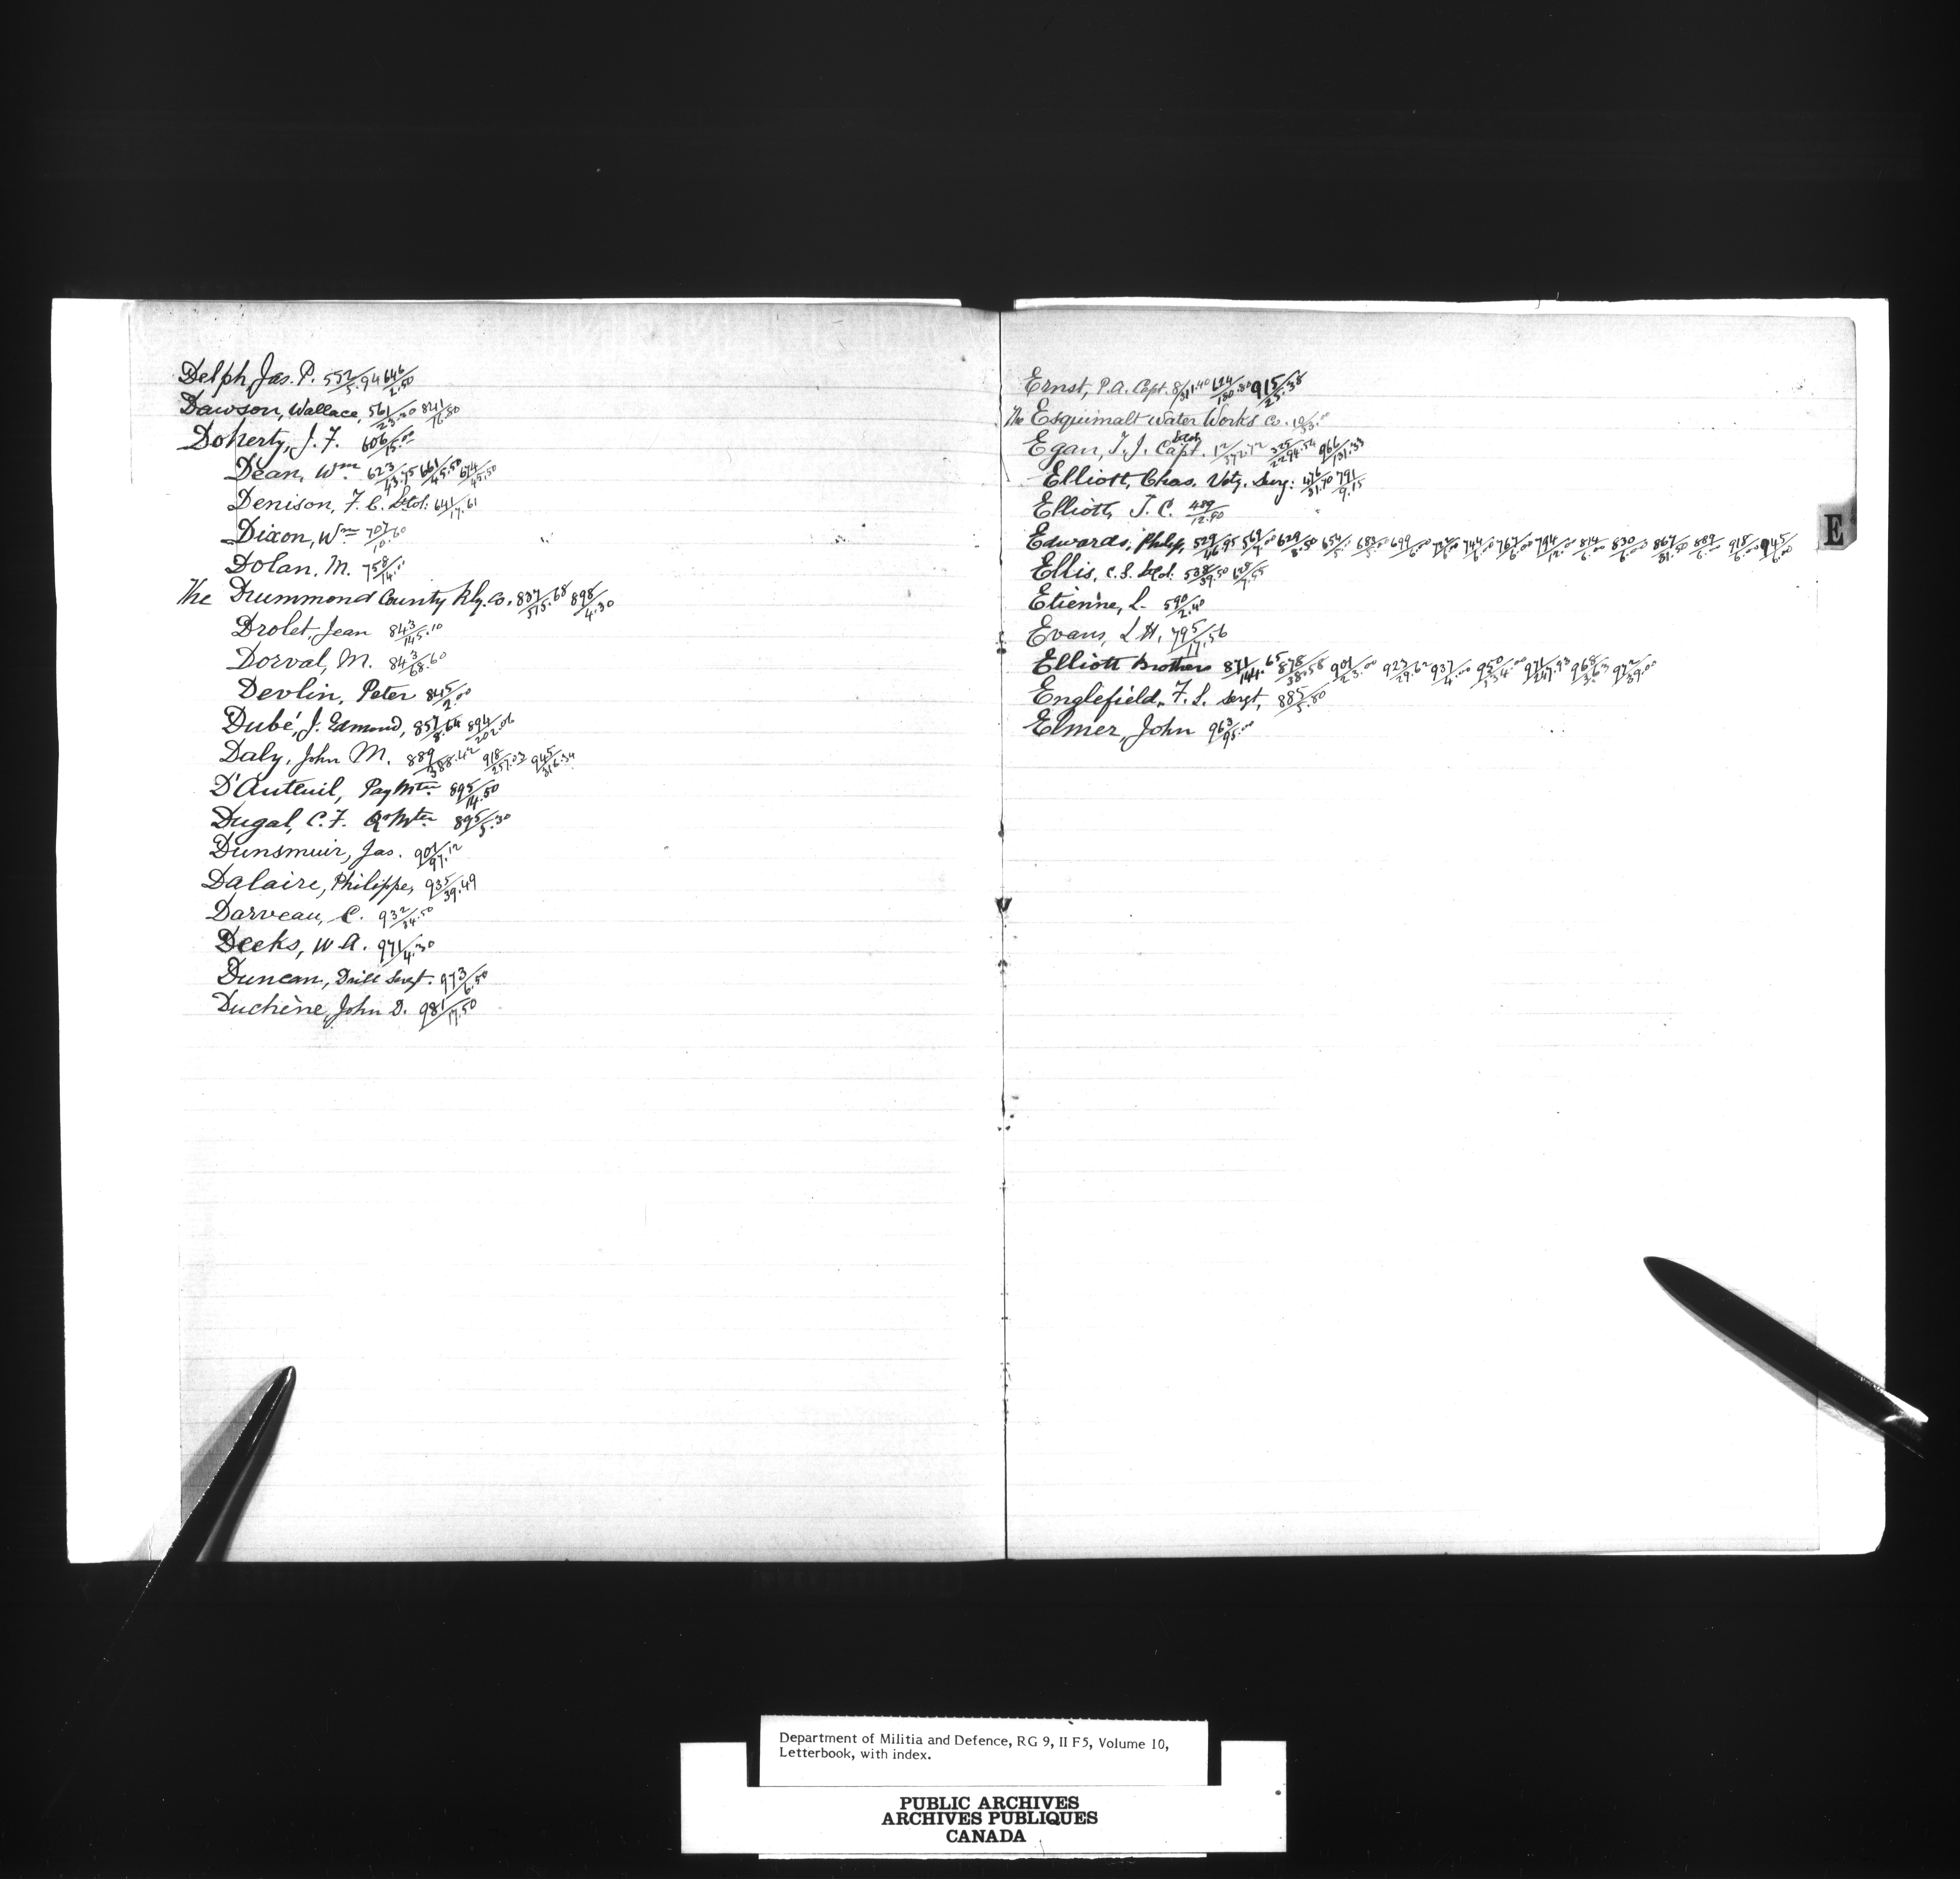 Delph, Jas. P. 552/5.94 646/2.50
Dawson, Wallace, 561/23.20 841/76.50
Doherty, J. F. 606/15.00
Dean, Wm 623/43.75 661/45.50 674/45.50
Denison, F. C. Lt Col: 641/17.61
Dixon, Wm 707/10.60
Dolan, M. 758/14.00
The Drummond County Rly. Co. 837/515.68 898/4.30
Drolet, Jean 843/145.10
Dorval, M. 843/68.60
Devlin, Peter 845/2.00
Dubé, J. Edmond, 857/8.64 894/202.06
Daly, John M. 889/388.42 918/257.03 945/316.34
D'Auteuil, Pay Mter 895/14.50
Dugal, C. F. Qr Mter 895/5.30
Dunsmuir, Jas. 901/97.12
Dalaire, Philippe, 935/39.49
Darveau, C. 932/34.50
Deeks, W A. 971/4.30
Duncan, Drill Sergt. 973/6.50
Duchène, John D. 981/17.50
Ernst, P. A. Capt. 8/31.40 624/180.80 915/25.38
The Esquimalt Water Works Co. 10/33.00
Egan, T. J. Capt. 12/372.72 325/2294.54 966/131.33
Elliott, Chas. Vety. Surg: 476/31.70 791/9.15
Elliott, J. C. 489/12.90
Edwards, Philip, 529/46.95 569/7.00 629/8.50 654/5. 683/5.00 699/6.00 724/6.00 744/6.00 767/6.00 794/12.00 814/6.00 830/6.00 867/31.50 889/6.00 918/6.00 945/6.00
Ellis, C. S. Lt Col: 538/39.50
Etienne, L. 590/2.40
Evans, L H, 795/17.56
Elliott Brothers 871/144.65 878/38.58 901/23.00 923/29.62 937/4.00 950/134.00 971/247.93 968/3.63 972/39.00
Englefield, F. L. Sergt, 885/5.50
Elmer, John 963/95.00
E
Department of Militia and Defence, RG 9, II F5, Volume 10,
Letterbook, with index.
PUBLIC ARCHIVES
ARCHIVES PUBLIQUES
CANADA